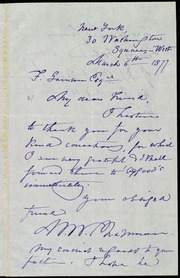 New York,
30 Washington
Square - West
March 6th 1877
F. Garrison Esqre
My dear Friend,
I hasten
to thank you for your
kind courtesy, for which
I am very grateful & I shall
forward them to
immediately.
Your obliged
friend
My kindest regards to your
father. I hope he